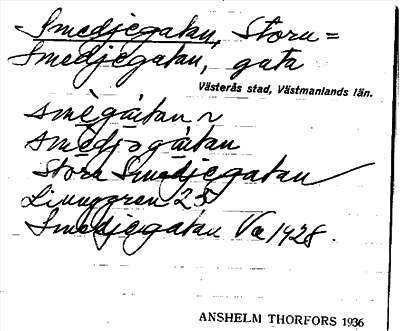 Smedjegatan, Stora =
Smedjegatan, gata
Västerås stad, Västmanlands län.
smègátan ~
smèdjögátan
Stora Smedjegatan
Ljunggren 25
Smedjegatan Va 1928.
ANSHELM THORFORS 1936